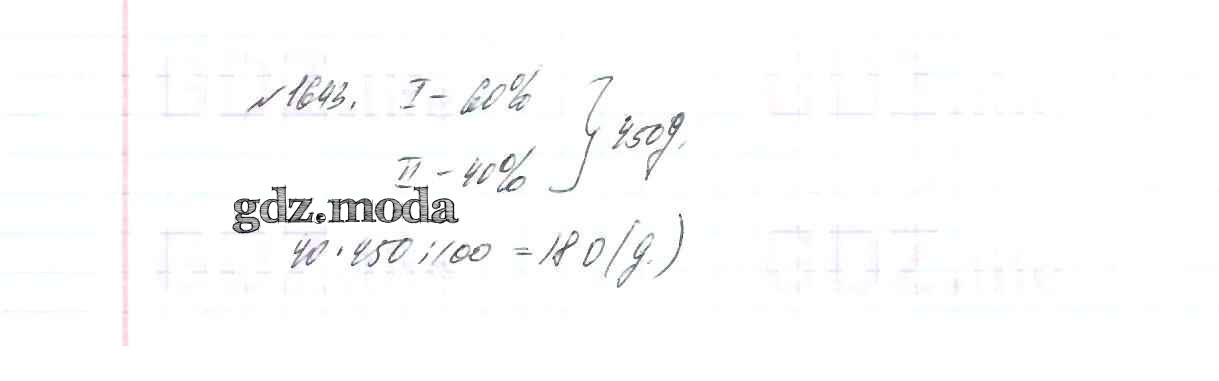 №1643. I – 60%
II – 40% } 450 д.
gdz.moda
40 · 450 : 100 = 180 (д.)